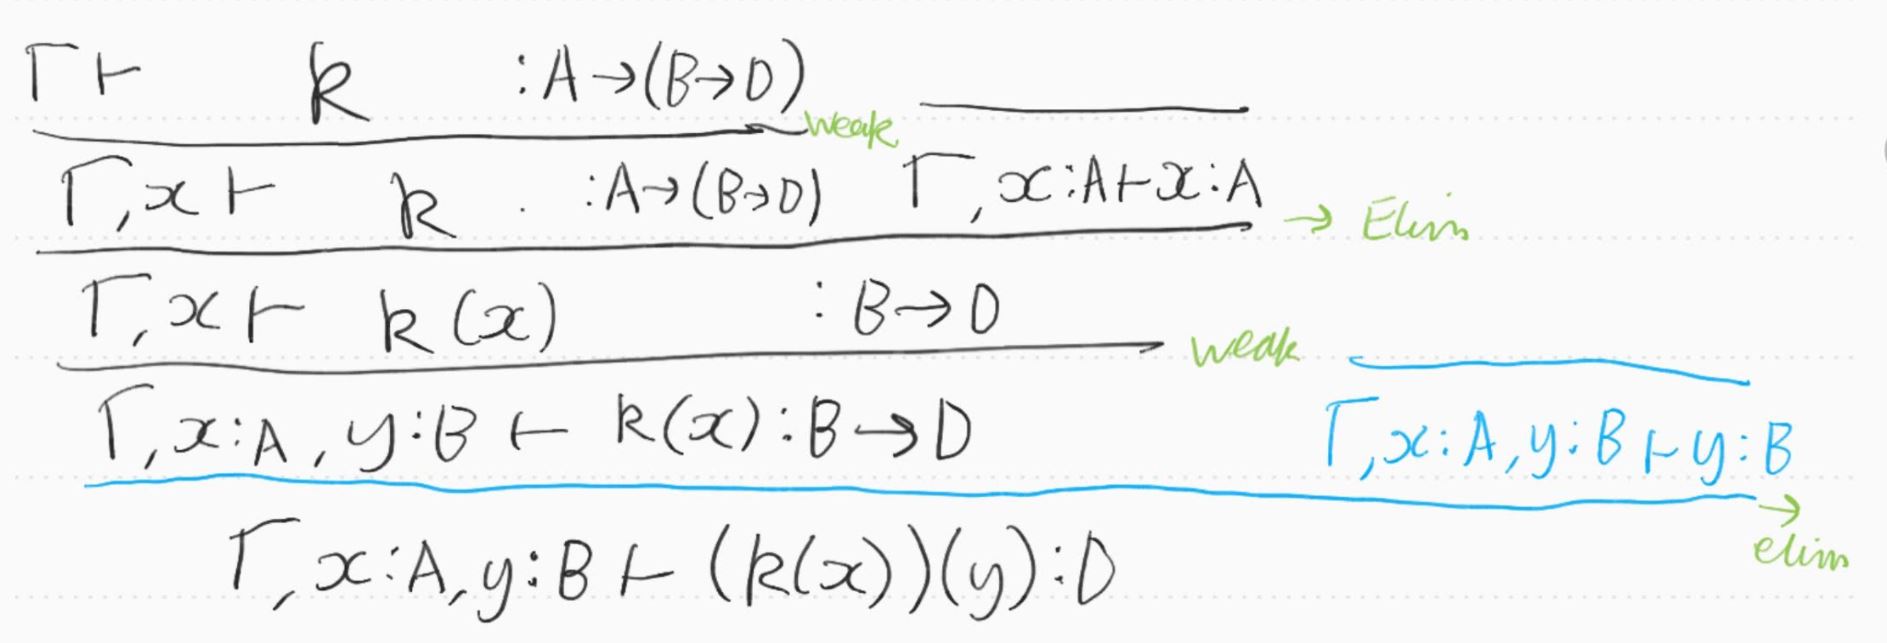 Γ ⊢ k : A → (B → D)
weak
Γ, x ⊢ k . : A → (B → D) Γ, x : A ⊢ x : A
→ Elim
Γ, x ⊢ k (x) : B → D
weak
Γ, x : A , y : B ⊢ k(x) : B → D Γ, x : A, y : B ⊢ y : B
→ elim
Γ, x : A, y : B ⊢ (k(x))(y) : D